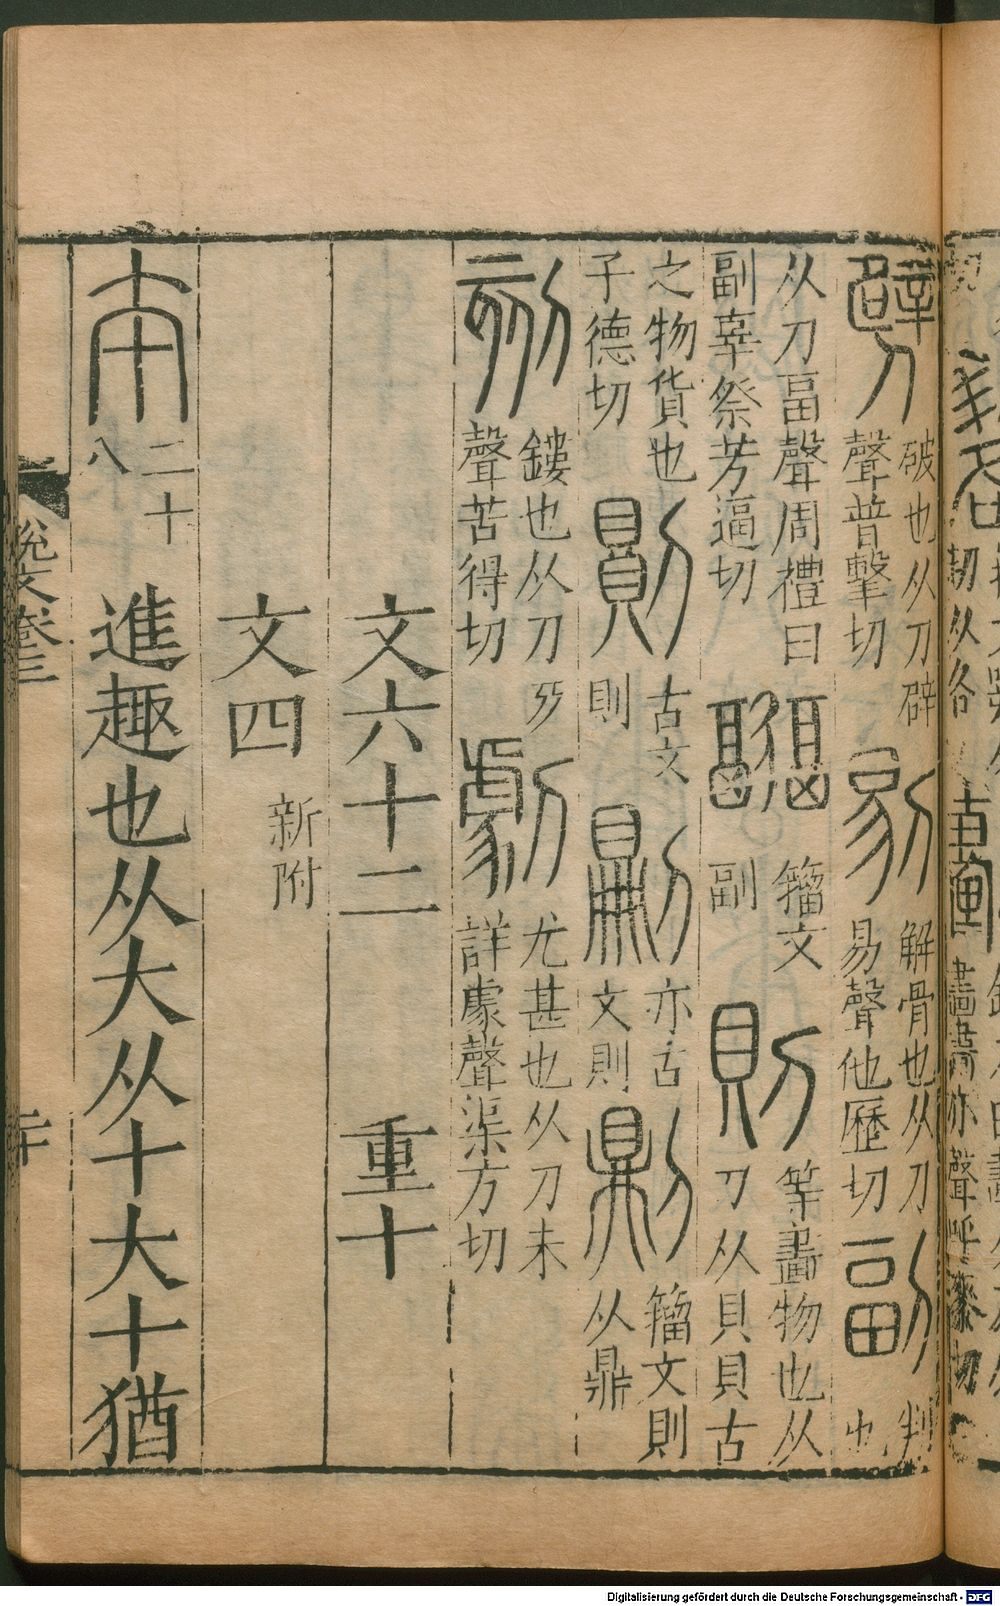 劈破也从刀辟聲普擊切 𠚣解骨也从刀易聲他歷切 副判也
从刀畐聲周禮曰副辜祭芳逼切 籀文副 則等畫物也从刀从貝貝古
之物貨也子德切 古文則 亦古文則 籀文則从鼎
刻鏤也从刀歹聲苦得切 劇尤甚也从刀未詳豦聲渠方切
文六十二 重十
文四 新附
夲二十八 進趣也从大从十大十猶
說文卷三
二十
Digitalisierung gefördert durch die Deutsche Forschungsgemeinschaft - DFG